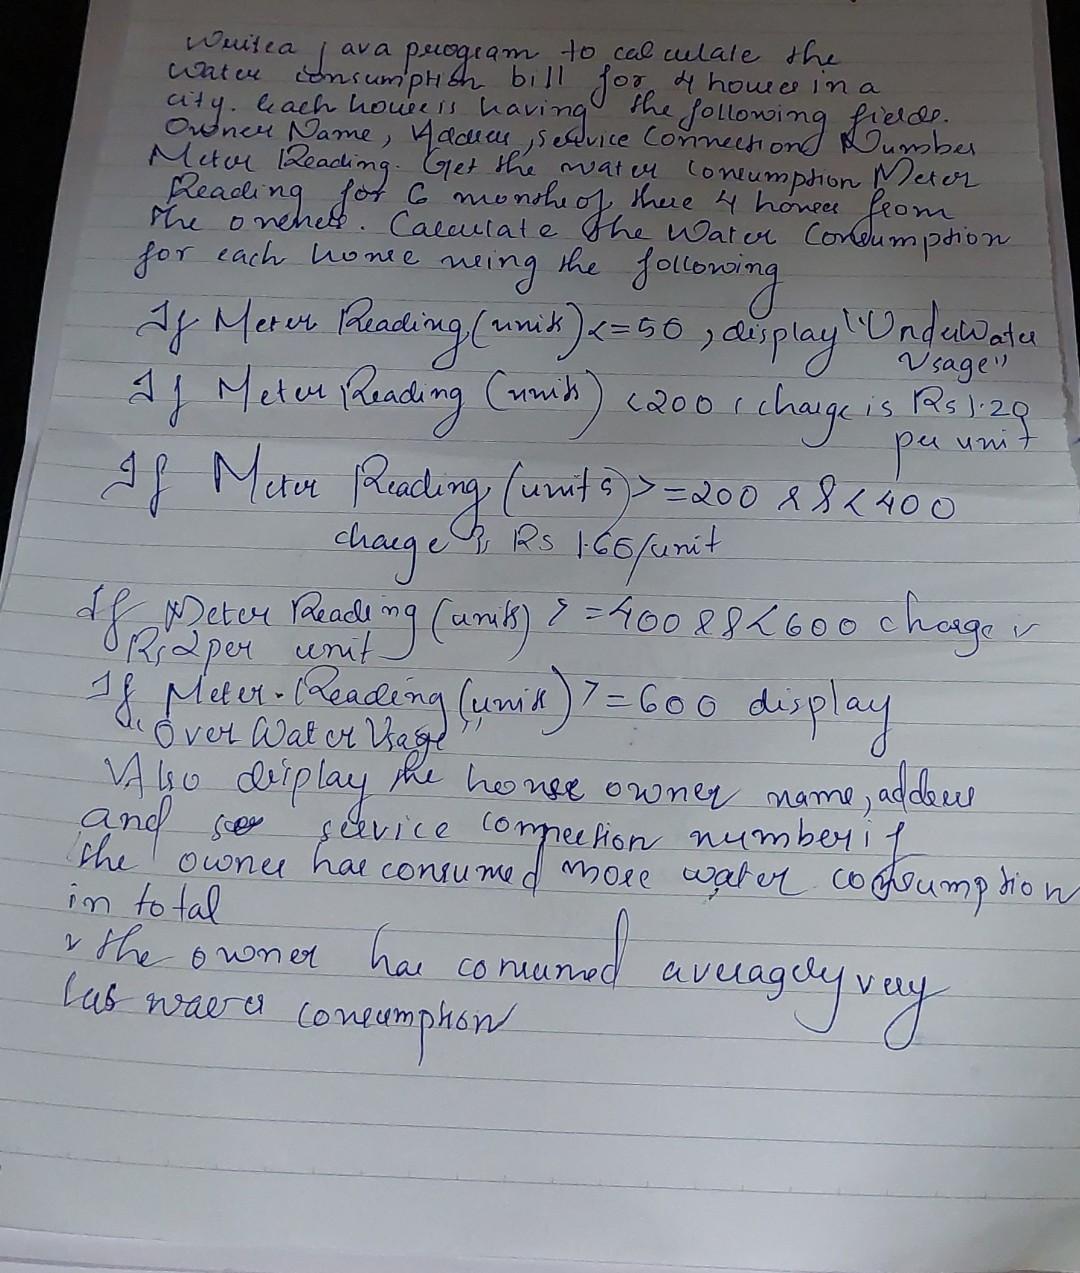 Write a java program to calculate the
water consumption bill for 4 houses in a
city. Each house is having the following fields.
Owner Name, Address, Service Connection Number
Meter Reading. Get the water consumption Meter
Reading for 6 months of these 4 houses from
the oneners. Calculate the Water Consumption
for each house using the following
If Meter Reading (units) <= 50, display "UnderWater
Usage"
If Meter Reading (units) < 200, charge is Rs 1.20
per unit
If Meter Reading (units) >= 200 && < 400
charge is Rs 1.60/unit
If Meter Reading (units) >= 400 && < 600 charge is
Rs 2 per unit
If Meter-Reading (units) >= 600 display
"Over Water Usage"
Also display the house owner name, address
and service connection number if
the owner has consumed more water consumption
in total
the owner has consumed averagely very
less water consumption